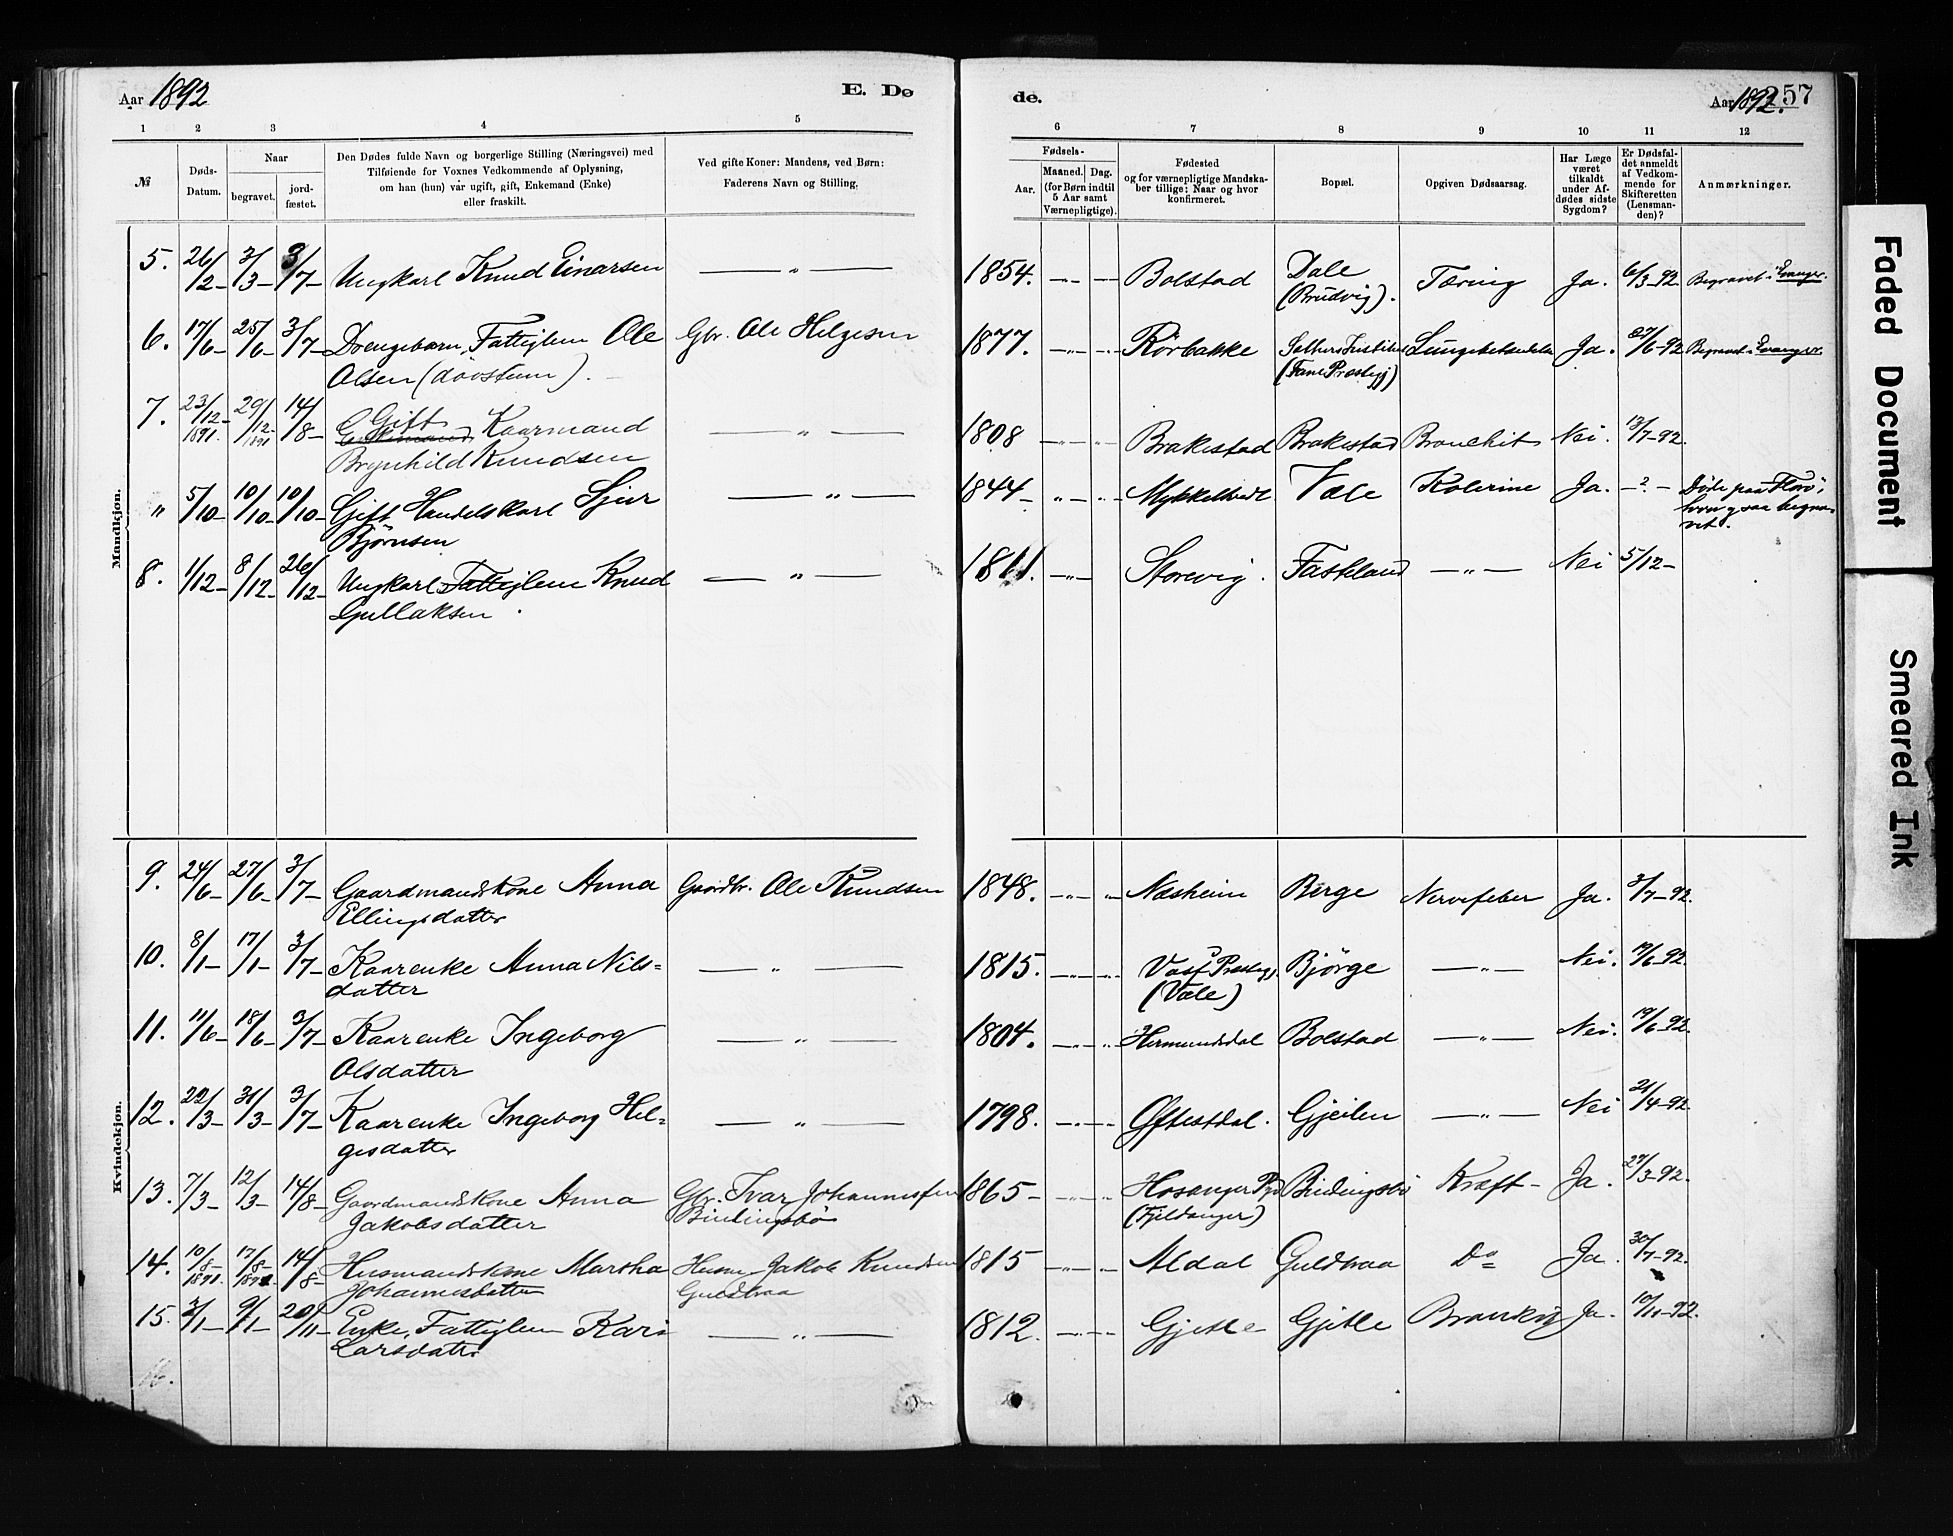 Aar 1892
E. Dø
de.
Aar 1892.
257
1 2 3 4 5 6 7 8 9 10 11 12
№
Døds-
Datum.
Naar
begravet.
jord-
fæstet.
Den Dødes fulde Navn og borgerlige Stilling (Næringsvei) med
Tilføiende for Voxnes Vedkommende af Oplysning,
om han (hun) var ugift, gift, Enkemand (Enke)
eller fraskilt.
Ved gifte Koner: Mandens, ved Børn:
Faderens Navn og Stilling.
Fødsels-
Aar.
Maaned. Dag.
(for Børn indtil
5 Aar samt
Værnepligtige).
Fødested
og for værnepligtige Mandska-
ber tillige: Naar og hvor
konfirmeret.
Bopæl.
Opgiven Dødsaarsag.
Har Læge
været
tilkaldt
under Af-
dødes sidste
Sygdom?
Er Dødsfal-
det anmeldt
af Vedkom-
mende for
Skifteretten
(Lensman-
den)?
Anmærkninger.
Mandkjøn.
5. 26/2- 3/3- 3/7- Ungkarl Knud Einarsen — " — 1854. -"- -"- Bolstad Dale Tæring Ja. 6/3-92. Begravet i Evanger.
(Brudvig).
6. 17/6- 25/6- 3/7- Drengebarn, Fattiglem Ole Gbr. Ole Helgesen 1877. -"- -"- Rörbakke Ja. 27/6-92 Begravet i Evanger
Olsen (døvstum). (Fane Præstegj)
7. 23/12- 1891. 29/12- 1891 14/8- Gift Kaarmand — " — 1808 -"- -"- Brakestad Brakestad Bronchit Nei. 13/7-92.
Brynhild Knudsen
" 5/10- 10/10- 10/10- Gift Handelskarl Sjur — " — 1844- " - " - Væle Kolerine Ja. - ? - Døde paa Florø,
Bjørnsen hvor ogsaa begra-
vet.
8. 1/12- 8/12- 26/12- Ungkarl Fattiglem Knud — " — 1811. -"- Storevig. Fasteland — " — Nei 5/12-
Gullaksen
Kvindekjøn.
9. 24/6- 27/6- 3/7- Gaardmandskone Anna Gaardbr. Ole Knudsen 1848. -"- -"- Næsheim Berge Nervefeber Ja. 3/7-92.
Ellingsdatter
10. 8/1- 17/1- 3/7- Kaarenke Anna Nils= — " — 1815. -"- -"- Voss Præstegj. Bjørge — " — Nei. /6-92.
datter (Væle)
11. 11/6- 18/6- 3/7- Kaarenke Ingeborg — " — 1804. -"- -"- Hermundsdal Bolstad — " — Nei. 19/6-92.
Olsdatter
12. 22/3- 31/3- 3/7- Kaarenke Ingeborg Hel= — " — 1798. -"- -"- Øftestdal. Gjeilen — " — Nei 21/4-92.
gesdatter
13. 7/3- 12/3- 14/8- Gaardmandskone Anna Gbr. Ivar Johannesen 1865- -"- -"- Hosanger Pgd Bindingsbø Kræft- Ja. 27/3-92.
Jakobsdatter Bindingsbø (Fjeldanger)
14. 10/8- 1891. 17/8- 1891 14/8- Husmandskone Martha Husm. Jakob Knudsen 1815 -"- -"- Aldal Guldbraa Do Ja. 30/7-92.
Johannesdatter Guldbraa
15. 3/1- 9/1- 20/11- Enke, Fattiglem Kari — " — 1812. -"- -"- Gjelle Gjelle Ja. 10/11-92.
Larsdatter
16.
Faded Document
Smeared Ink